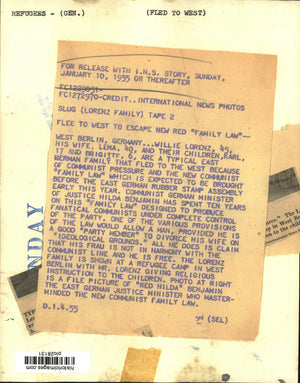 REFUGEES - (GEN.)
(FLED TO WEST)
FOR RELEASE WITH I.N.S. STORY, SUNDAY,
JANUARY 10, 1955 OR THEREAFTER
FC1272970-CREDIT..INTERNATIONAL NEWS PHOTOS
SLUG (LORENZ FAMILY) TAPE 2
FLEE TO WEST TO ESCAPE NEW RED "FAMILY LAW"--
WEST BERLIN, GERMANY...WILLIE LORENZ, 45,
HIS WIFE, LENA, 40, AND THEIR CHILDREN, KARL,
17 AND BRIGITTE, 6, ARE A TYPICAL EAST
GERMAN FAMILY THAT FLED TO THE WEST BECAUSE
OF COMMUNIST PRESSURE AND THE NEW COMMUNIST
"FAMILY LAW" WHICH IS EXPECTED TO BE BROUGHT
BEFORE THE EAST GERMAN RUBBER STAMP ASSEMBLY
EARLY THIS YEAR. COMMUNIST GERMAN MINISTER
OF JUSTICE HILDA BENJAMIN HAS SPENT TEN YEARS
ON THIS "FAMILY LAW" DESIGNED TO PRODUCE
FANATICAL COMMUNISTS UNDER COMPLETE CONTROL
OF THE PARTY. ONE OF THE VARIOUS PROVISIONS
OF THE LAW WOULD ALLOW A MAN, PROVIDED HE IS
A GOOD "PARTY MEMBER" TO DIVORCE HIS WIFE ON
"IDEOLOGICAL GROUNDS." ALL HE DOES IS CLAIM
THAT HIS FRAU IS NOT IN HARMONY WITH THE
COMMUNIST LINE AND HE IS FREE. THE LORENZ
FAMILY IS SHOWN AT A REFUGEE CAMP IN WEST
BERLIN WITH MR. LORENZ GIVING RELIGIOUS
INSTRUCTION TO THE CHILDREN. PHOTO AT RIGHT
IS A FILE PICTURE OF "RED HILDA" BENJAMIN
THE EAST GERMAN JUSTICE MINISTER WHO MASTER-
MINDED THE NEW COMMUNIST FAMILY LAW.
D.1.4.55
(SEL)
NDAY
historicimages.com